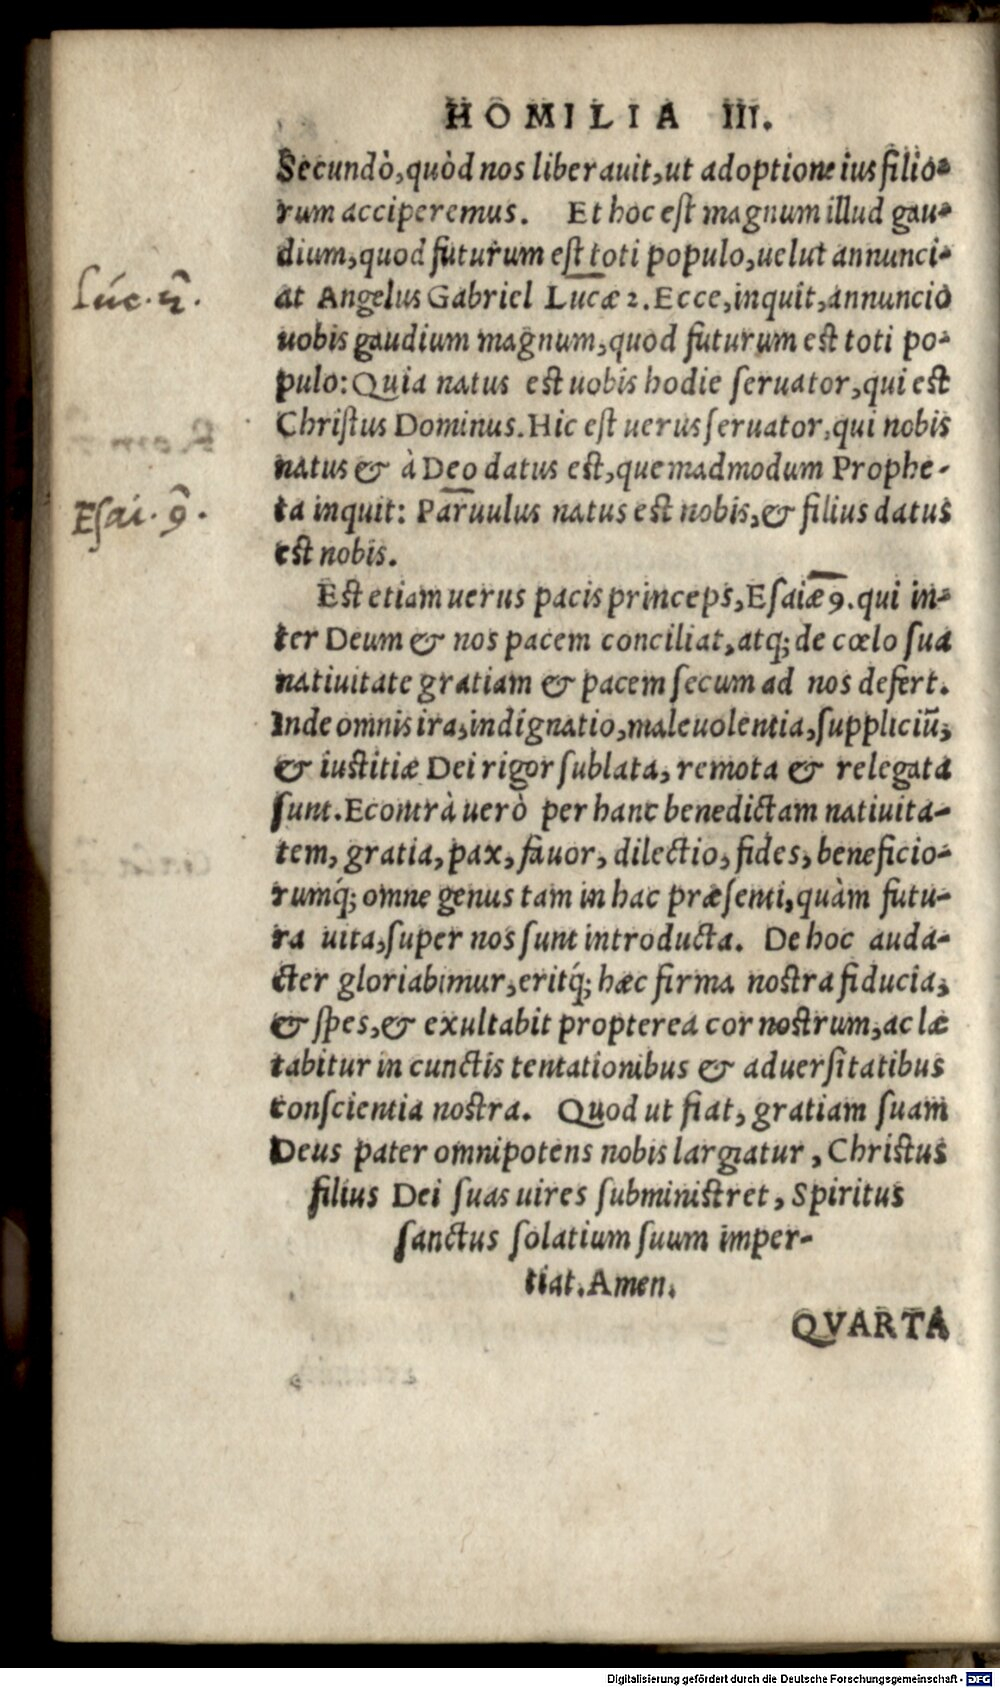 HOMILIA III.
Secundò, quòd nos liberauit, ut adoptione ius filio-
rum acciperemus. Et hoc est magnum illud gau-
dium, quod futurum est toti populo, uelut annunci-
at Angelus Gabriel Lucæ 2. Ecce, inquit, annuncio
Luc. 2.
uobis gaudium magnum, quod futurum est toti po-
pulo: Quia natus est uobis hodie seruator, qui est
Christus Dominus. Hic est uerus seruator, qui nobis
natus & à Deo datus est, quemadmodum Prophe-
ta inquit: Paruulus natus est nobis, & filius datus
Esai. 9.
est nobis.
Est etiam uerus pacis princeps, Esaiæ 9. qui in-
ter Deum & nos pacem conciliat, atq; de cœlo sua
natiuitate gratiam & pacem secum ad nos defert.
Inde omnis ira, indignatio, maleuolentia, suppliciũ,
& iustitiæ Dei rigor sublata, remota & relegata
sunt. Econtrà uerò per hanc benedictam natiuita-
tem, gratia, pax, fauor, dilectio, fides, beneficio-
rumq́; omne genus tam in hac præsenti, quàm futu-
ra uita, super nos sunt introducta. De hoc auda-
cter gloriabimur, eritq́; hæc firma nostra fiducia,
& spes, & exultabit propterea cor nostrum, ac læ
tabitur in cunctis tentationibus & aduersitatibus
conscientia nostra. Quod ut fiat, gratiam suam
Deus pater omnipotens nobis largiatur, Christus
filius Dei suas uires subministret, Spiritus
sanctus solatium suum imper-
tiat. Amen.
QVARTA
Digitalisierung gefördert durch die Deutsche Forschungsgemeinschaft - DFG